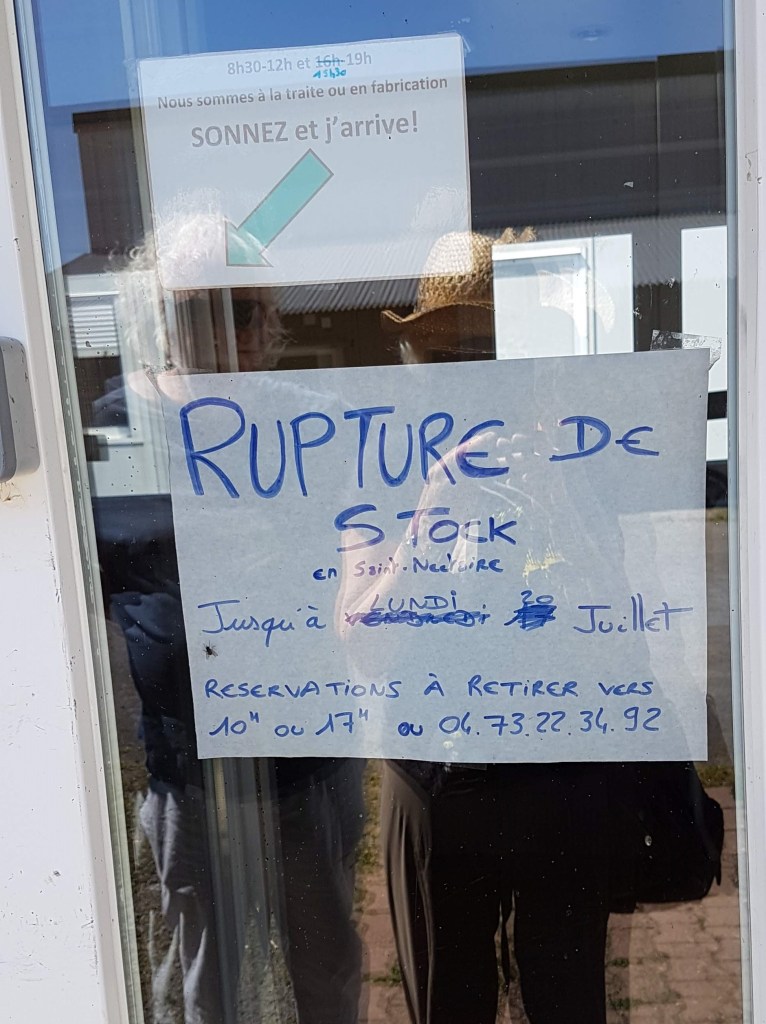 8h30-12h et 16h-19h
15h30
Nous sommes à la traite ou en fabrication
SONNEZ et j'arrive!
RUPTURE DE
STOCK
en Saint-Nectaire
LUNDI 20
Jusqu'à VENDREDI Juillet
RESERVATIONS À RETIRER VERS
10H ou 17H ou 04.73.22.34.92